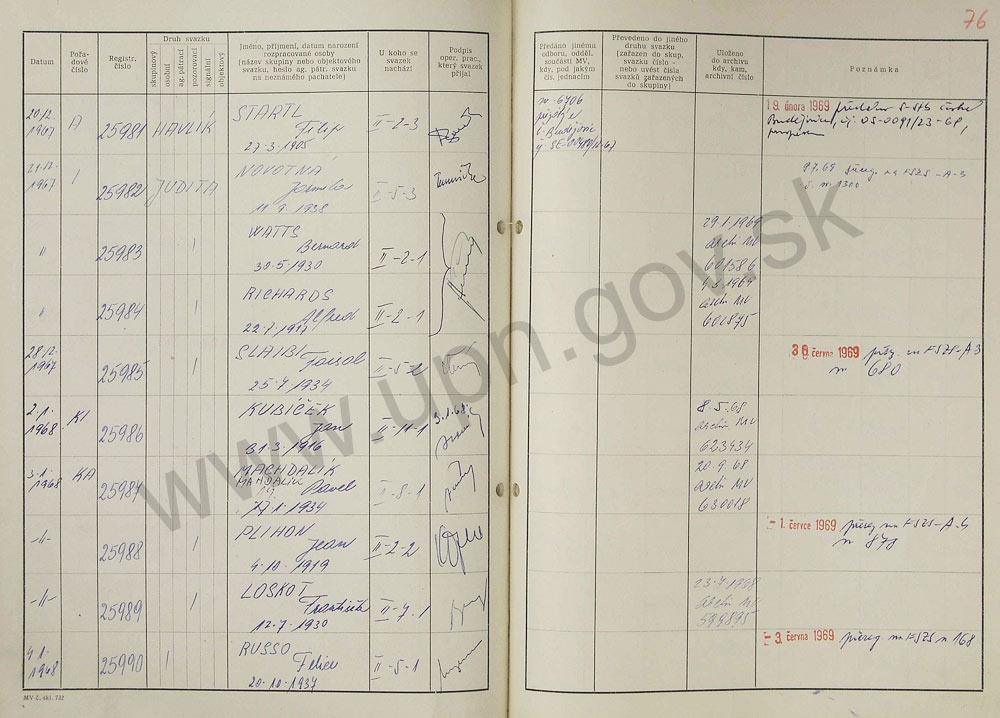 76
Datum
Pořa-
dové
číslo
Registr.
číslo
Druh svazku
skupinový
osobní
ag. pátrací
pozorovací
signální
objektový
Jméno, příjmení, datum narození
rozpracované osoby
(název skupiny nebo objektového
svazku, heslo ag. pátr. svazku
na poznámého pachatele)
U koho se
svazek
nachází
Podpis
oper. prac.,
který svazek
přijal
Předáno jinému
odboru, odděl.
součásti MV,
kdy, pod jakým
čís. jednacím
Převedeno do jiného
druhu svazku
(zařazen do skup.
svazku číslo -
nebo uvést čísla
svazků zařazených
do skupiny)
Uloženo
do archivu
kdy, kam,
archivní číslo
Poznámka
20/12.
1967
A
25981
HAVLÍK
STARTL
Filip
27-3-1905
II-2-3
19. února 1969
21/12.
1967
1
25982
JUDITA
NOVOTNÁ
Jarmila
11-9-1938
II-5-3
9.7.69 přereg. na FSZS-A-3
č. m 1300
"
25983
1
WATTS
Bernard
30-5-1930
II-2-1
29.1.1969
archiv MV
601586
"
25984
1
RICHARDS
Alfred
II-2-1
archiv MV
602875
28/12.
1967
25985
1
SLAIBI
Faisal
25-4-1934
30. června 1969 přereg. na FSZS-A-3
m 680
2-1.
1968
KI
25986
1
KUBÍČEK
Jan
31-3-1916
II-11-1
3.1.68.
8-5-68
archiv MV
623434
3-1.
1968
KA
25987
1
MACHDALÍK
MAHDALÍK
Pavel
I-8-1
20-9-68
archiv MV
630018
-"-
25988
1
PLIHON
Jean
4-10-1919
II-2-2
- 1. července 1969 přereg. na FSZS-A-3
m 878
-"-
25989
1
LOSKOT
František
12-7-1930
II-7-1
23-7-1968
archiv MV
599895
4-1.
1968
25990
1
RUSSO
Felice
20-10-1937
II-5-1
- 3. června 1969 přereg. na FSZS m 168
MV č. skl. 732
www.upn.gov.sk